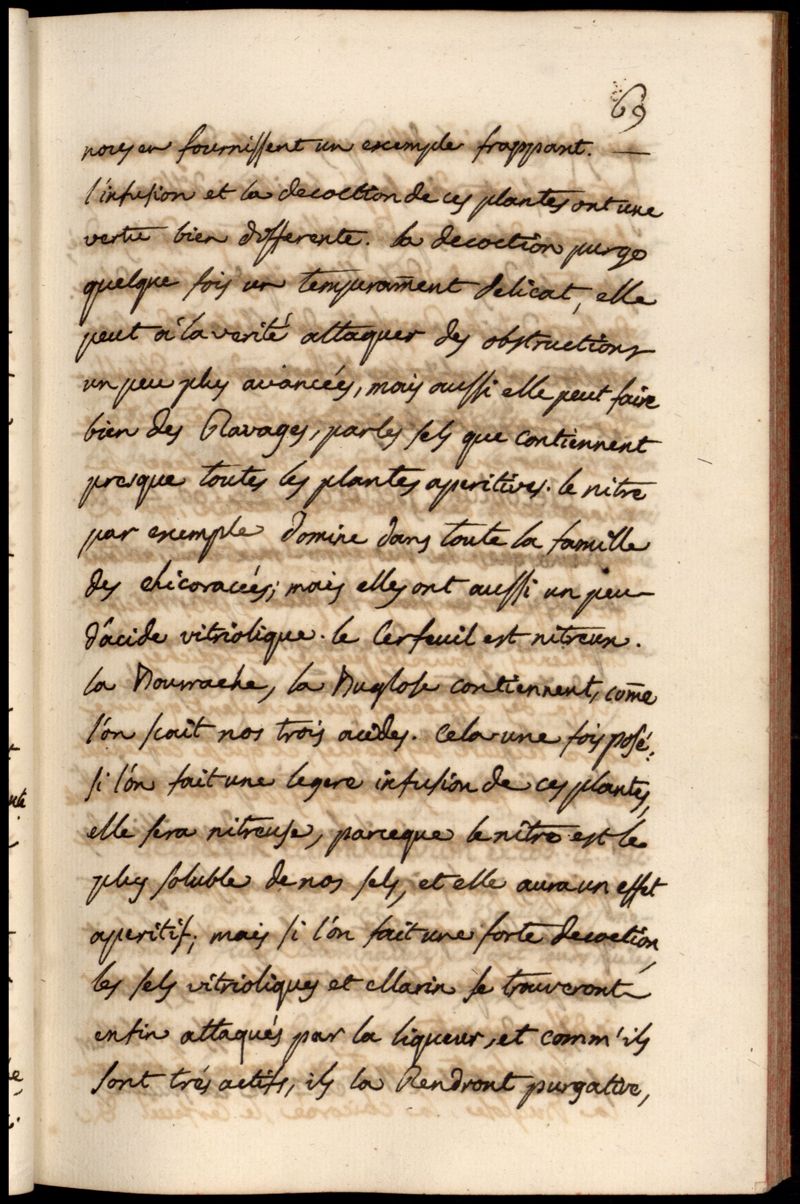 69
nous en fournissent un exemple frappant. —
l'infusion et la decoction de ces plantes ont une
vertu bien differente. la decoction purge
quelque fois un temperam̄ent delicat, elle
peut à la verité attaquer des obstructions
un peu plus avancées, mais aussi elle peut faire
bien des Ravages, par les sels que contiennent
presque toutes les plantes aperitives. le nitre
par exemple domine dans toute la famille
des chicoracées; mais elles ont aussi un peu
d'acide vitriolique. le Cerfeuil est nitreux.
la Bourrache, la Buglose contiennent, com̄e
l'on scait nos trois acides. Cela une fois posé:
si l'on fait une legere infusion de ces plantes,
elle sera nitreuse, parceque le nitre est le
plus soluble de nos sels, et elle aura un effet
aperitif; mais si l'on fait une forte decoction,
les sels vitrioliques et Marin se trouveront
enfin attaqués par la liqueur, et comm'ils
sont trés actifs, ils la Rendront purgative,